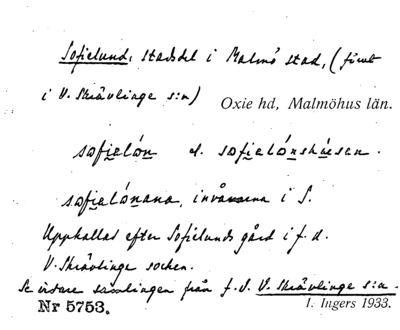 Sofielund, stadsdel i Malmö stad, (förut
i V. Skrävlinge s:n) Oxie hd, Malmöhus län.
sofielón el. sofielónshúsen.
sofielónana, invånarna i S.
Uppkallat efter Sofielunds gård i f. d.
V. Skrävlinge socken.
Se vidare samlingen från f. d. V. Skrävlinge s:n.
Nr 5753. I. Ingers 1933.